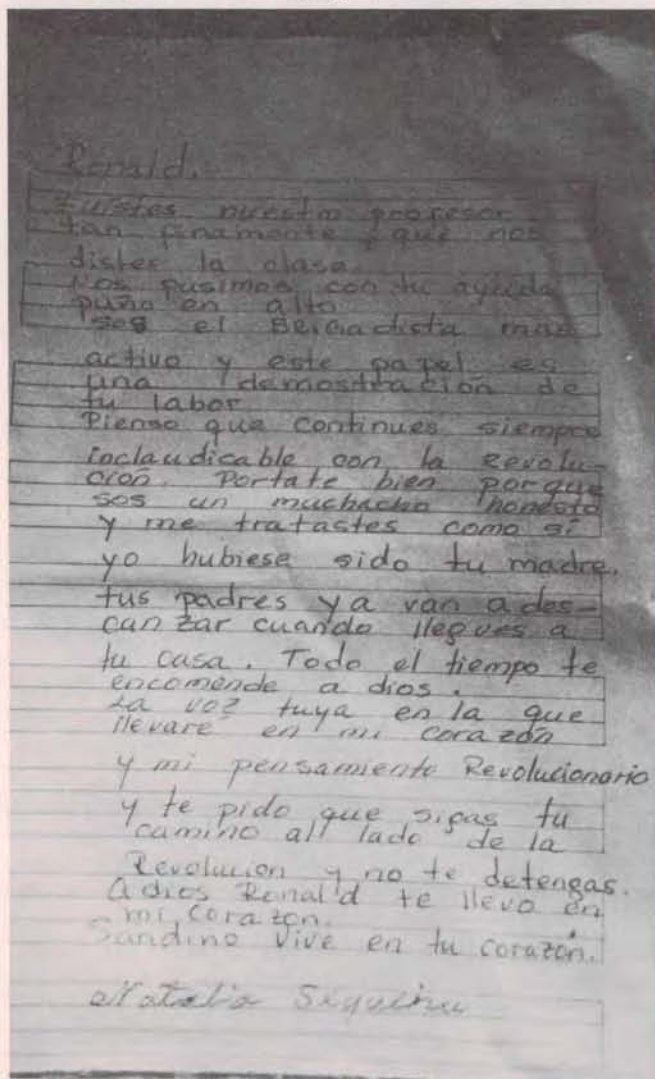 Ronald.
fuistes nuestro profesor
tan finamente, que nos
distes la clase
Nos pusimos con tu ayuda
puño en alto
sos el Brigadista mas
activo y este papel es
una demostración de
tu labor
Pienso que continues siempre
inclaudicable con la Revolu-
ción. Portate bien porque
sos un muchacho honesto
y me tratastes como si
yo hubiese sido tu madre.
tus padres ya van a des-
canzar cuando llegues a
tu casa. Todo el tiempo te
encomende a dios.
La voz tuya en la que
llevare en mi corazón
y mi pensamiento Revolucionario
y te pido que sigas tu
camino all lado de la
Revolucion y no te detengas.
Adios Ronald te llevo en
mi corazon.
Sandino vive en tu corazón.
Natalia